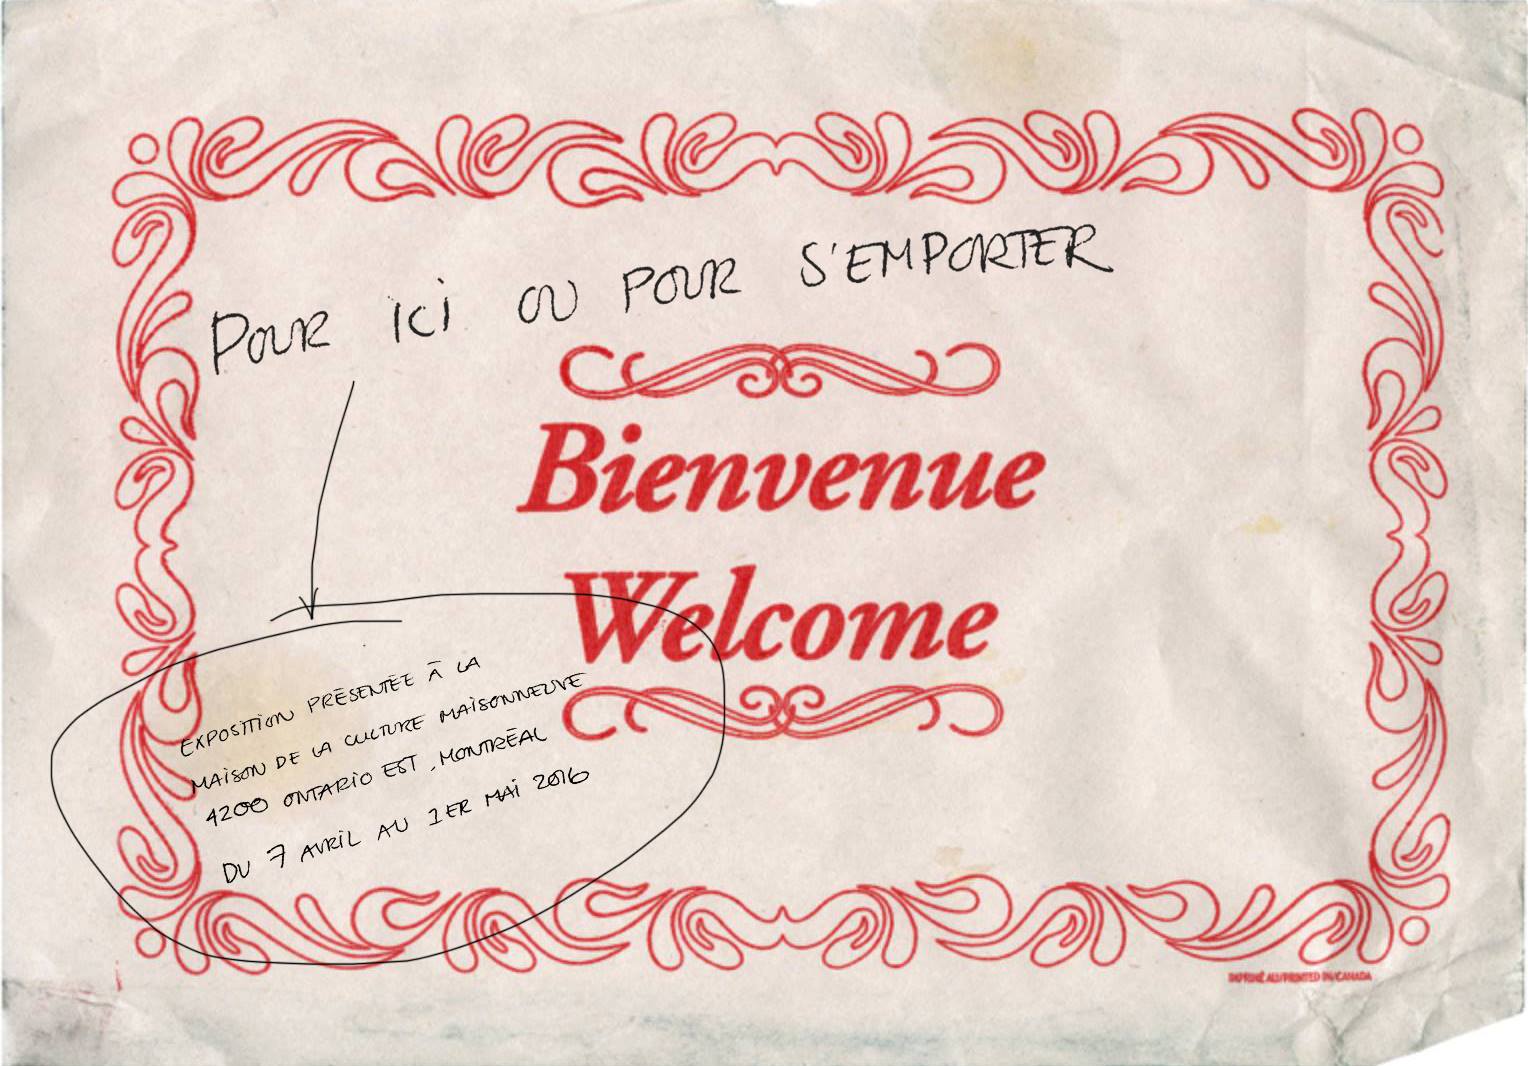 POUR ICI OU POUR S'EMPORTER
Bienvenue
Welcome
EXPOSITION PRÉSENTÉE À LA
MAISON DE LA CULTURE MAISONNEUVE
4200 ONTARIO EST, MONTRÉAL
DU 7 AVRIL AU 1ER MAI 2016
IMPRIMÉ AU/PRINTED IN/CANADA